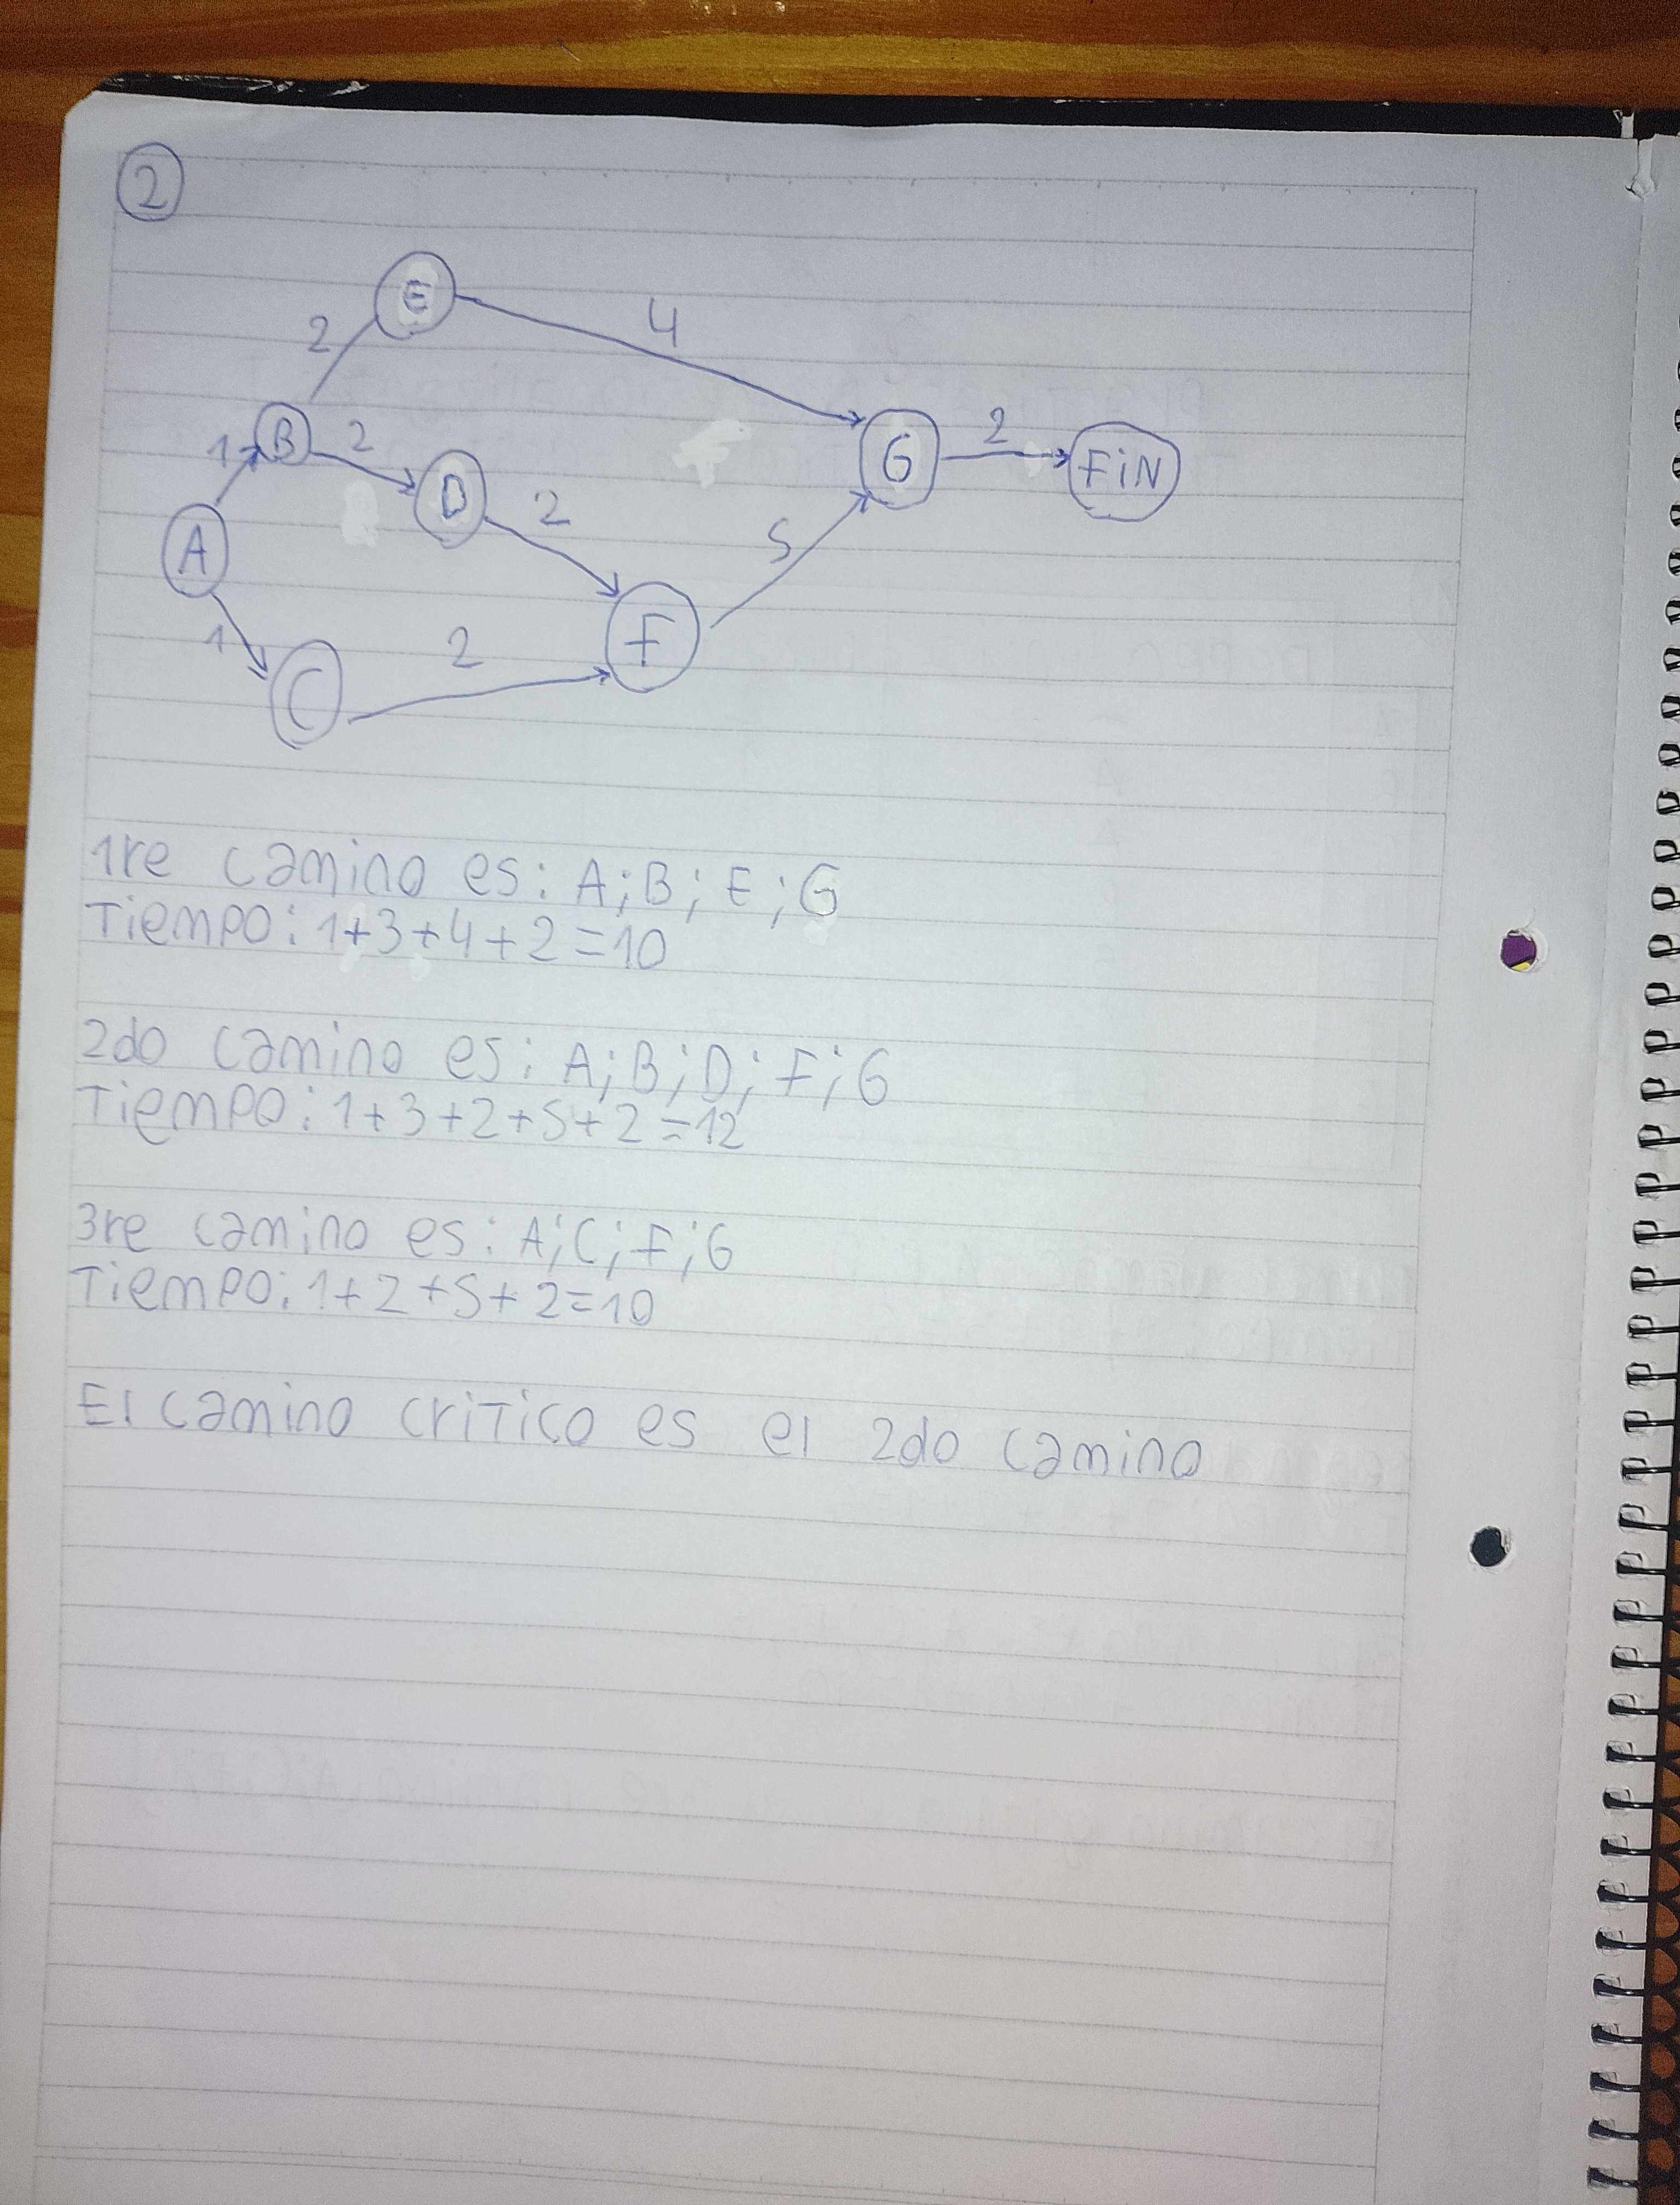 2
E
2
4
B
2
1
G
2
FiN
D
2
A
5
1
F
2
C
1re camino es: A; B; E; G
Tiempo: 1+3+4+2=10
2do camino es: A; B; D; F; G
Tiempo: 1+3+2+5+2=12
3re camino es: A; C; F; G
Tiempo: 1+2+5+2=10
El camino critico es el 2do camino